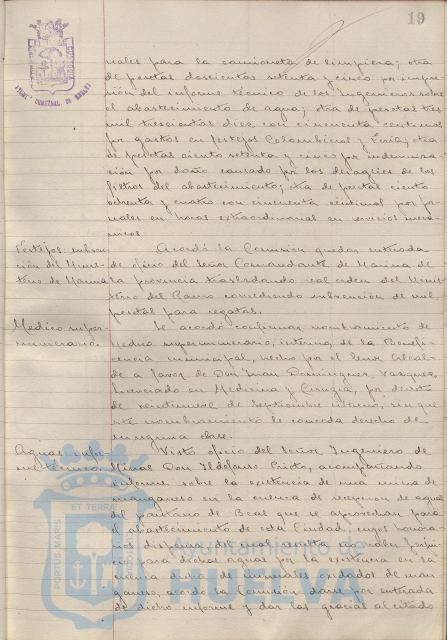 19
nales para la camioneta de limpieza; otra
de pesetas doscientas setenta y cinco por impre-
sión del informe técnico de los Ingenieros sobre
el abastecimiento de agua; otra de pesetas tres
mil trescientas diez con cincuenta centimos
por gastos en festejos Colombinos y Feria; otra
de pesetas ciento setenta y cinco por indemniza-
ción por daño causado por los desagües de los
filtros del abastecimiento; otra de pesetas ciento
ochenta y cuatro con cincuenta centimos por jor-
nales en horas extraordinarias en servicios mecá-
nicos
Festejos: subven-
ción del Minis-
terio de Marina
Acordó la Comisión quedar enterada
de oficio del Señor Comandante de Marina de
la provincia trasladando real orden del Minis-
terio del Ramo concediendo subvención de mil
pesetas para regatas.
Médico super-
numerario.
Se acordó confirmar nombramiento de
Médico supernumerario, interino, de la Benefi-
cencia municipal, hecho por el Señor Alcal-
de a favor de Don Juan Dominguez Vazquez,
licenciado en Medicina y Cirugía, por decreto
de veintinueve de Septiembre último, sin que
este nombramiento le conceda derecho de
ninguna clase.
Aguas: infor-
me técnico.
Visto oficio del Señor Ingeniero de
Minas Don Ildefonso Prieto, acompañando
informe sobre la existencia de una mina de
manganeso en la cuenca de recepción de aguas
del pantano de Beas que se aprovechan para
el abastecimiento de esta Ciudad, cuyos honora-
rios del cual resulta no haber perjui-
cio para dichas aguas por la existencia en la
cuenca dicha de minerales oxidados de man-
ganeso, acordó la Comisión darse por enterada
de dicho informe y dar las gracias al citado
PORTUS MARIS
ET TERRAE
Ayuntamiento de
HUELVA